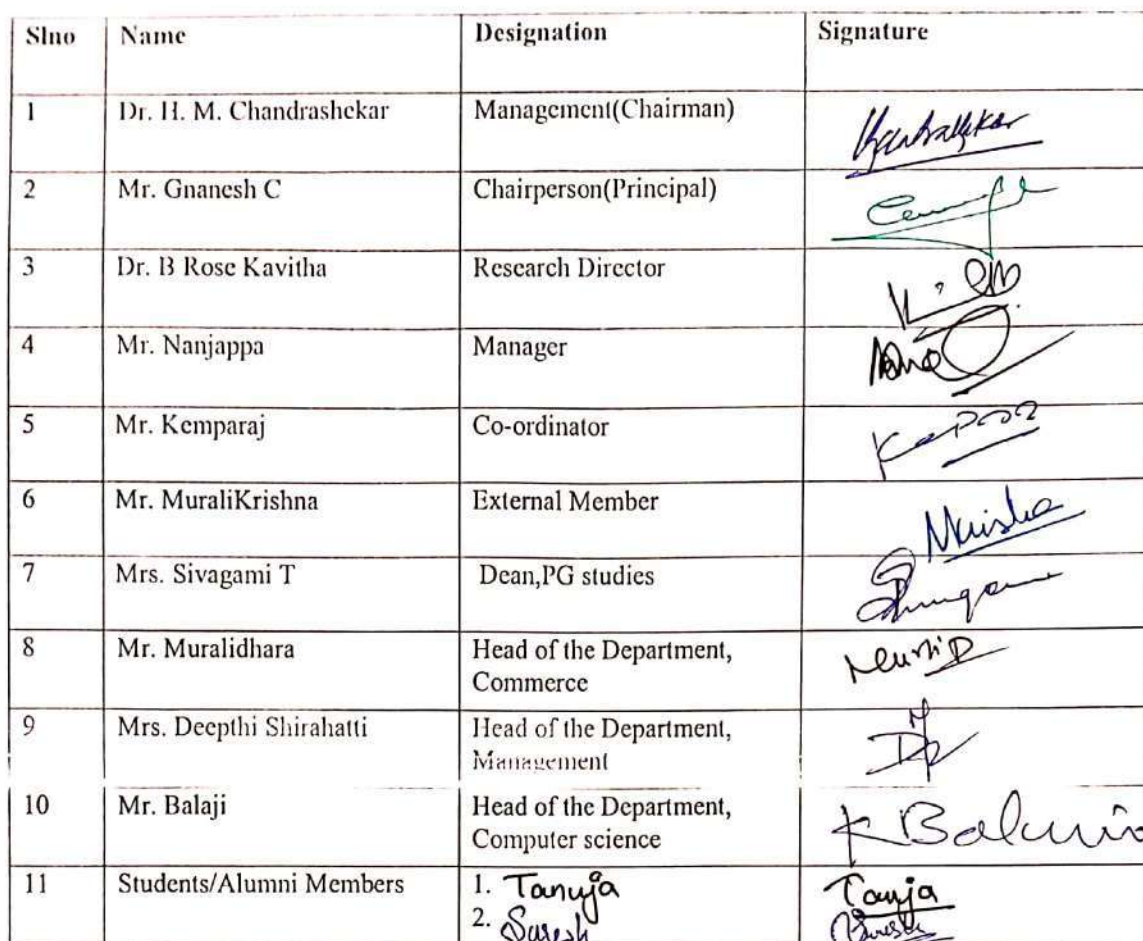 Slno Name Designation Signature
1 Dr. H. M. Chandrashekar Management(Chairman)
2 Mr. Gnanesh C Chairperson(Principal)
3 Dr. B Rose Kavitha Research Director
4 Mr. Nanjappa Manager
5 Mr. Kemparaj Co-ordinator
6 Mr. MuraliKrishna External Member
7 Mrs. Sivagami T Dean,PG studies
8 Mr. Muralidhara Head of the Department,
Commerce
9 Mrs. Deepthi Shirahatti Head of the Department,
Management
10 Mr. Balaji Head of the Department,
Computer science
11 Students/Alumni Members 1. Tanuja Tanuja
2. Suresh Suresh